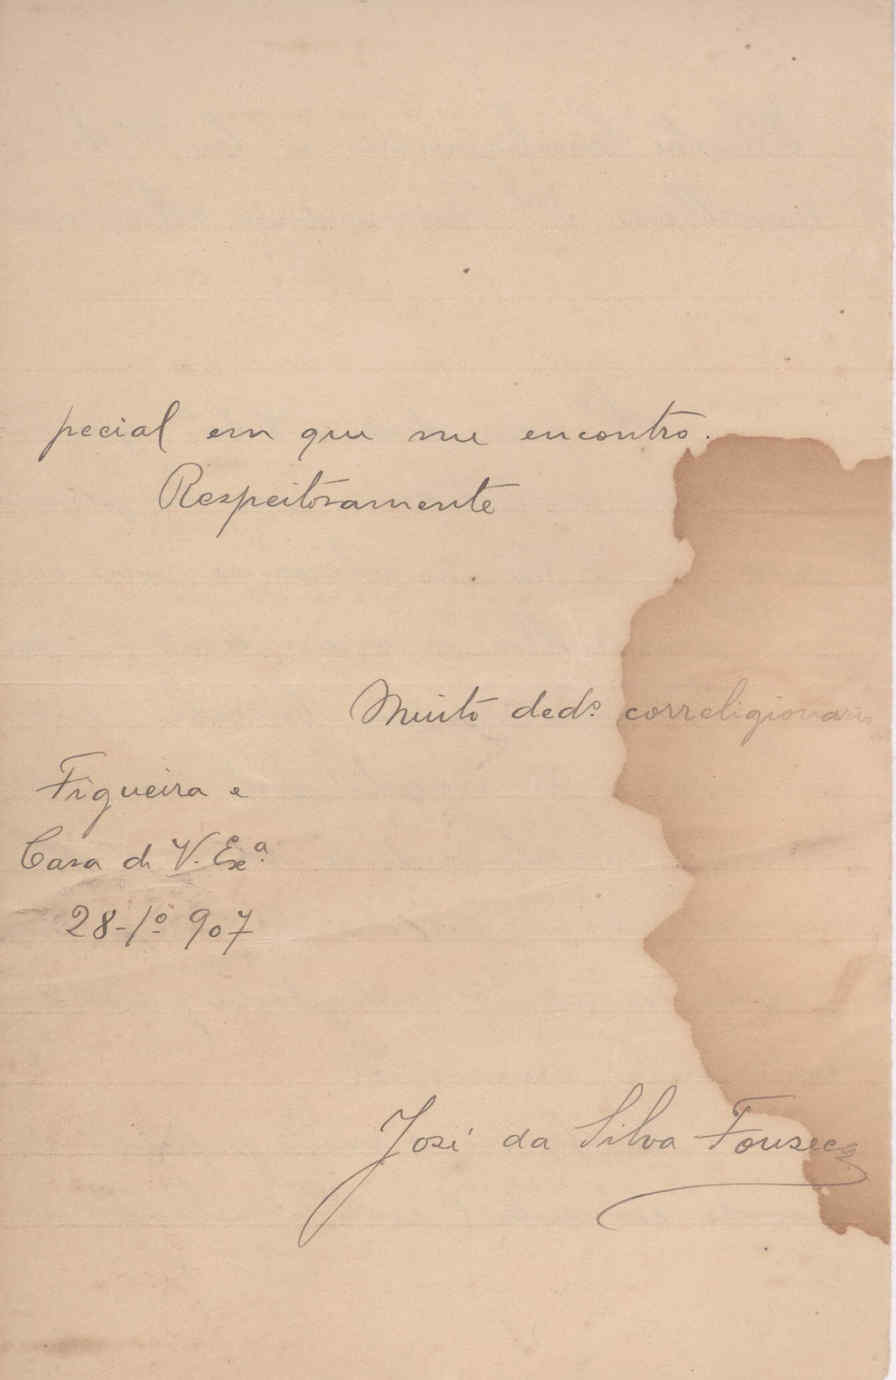 pecial em que me encontro.
Respeitosamente
Muito dedº correligionario
Figueira e
Casa de V. Exª.
28-1º 907
José da Silva Fonseca